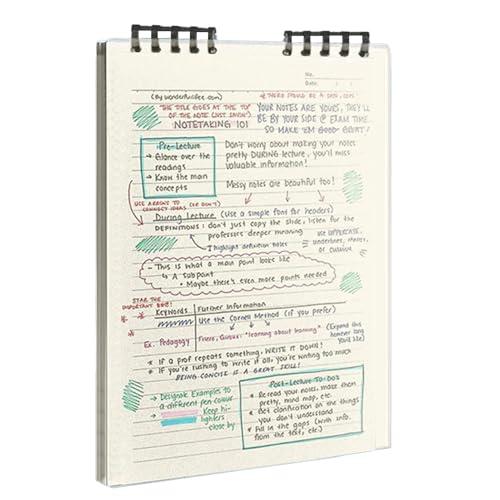 No.
Date.
(By wonderfulcollee.com)
* THERE SHOULD BE A DATE, ALSO.
THE TITLE GOES AT THE TOP
OF THE NOTE (JUST SAYIN')
NOTETAKING 101
YOUR NOTES ARE YOURS, THEY'LL
BE BY YOUR SIDE @ EXAM TIME...
SO MAKE 'EM GOOD GREAT!
Pre-Lecture
→ Glance over the
readings
→ Know the main
concepts
Don't worry about making your notes
pretty DURING lecture, you'll miss
valuable information!
Messy notes are beautiful too!
USE ARROWS TO
CONNECT IDEAS (OR DON'T)
During Lecture (Use a simple font for headers)
DEFINITIONS: don't just copy the slide, listen for the
professors deeper meaning
I highlight definition notes
Use UPPERCASE,
underlines, shapes,
or cursive.
- This is what a main point looks like
↳ A subpoint
• Maybe there's even more points needed
STAR THE
IMPORTANT BITS!
Keywords
Further Information
Use the Cornell Method (if you prefer)
Ex. Pedagogy
"learning about learning"
(Expand this
however long
you'd like)
* If a prof repeats something, WRITE IT DOWN!
* If you're rushing to write it all, you're writing too much
BEING CONCISE IS A GREAT SKILL!
→ Designate Examples to
a different pen colour
→ Keep hi-
lighters
close by
Post-Lecture To-Do's
• Reread your notes, make them
pretty, mind map, etc.
• Get clarification on the things
you don't understand
• Fill in the gaps (with info.
from the text, etc.)